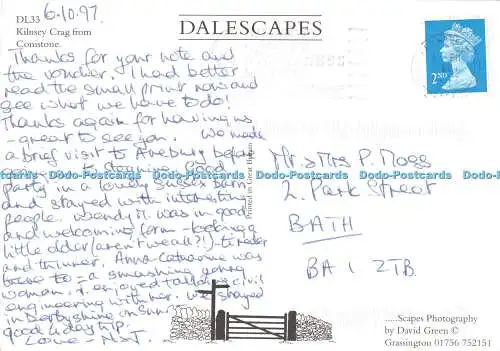 6.10.97.
DL33
Kilnsey Crag from
Conistone.
DALESCAPES
2ND
Thanks for your note and
the voucher. I had better
read the small print now and
see what we have to do!
Thanks again for having us
- great to see you. We made
a brief visit to Avebury before
party in a lovely Sussex barn
and stayed with interesting
people. Wendy M. was in good
and welcoming form - looking a
little older (aren't we all?!)
and thinner. Anna-Catharine was
there too - a smashing young
woman. I enjoyed talking civil
engineering with her. We stayed
in Derbyshire on
good 4 day trip.
Love -
Printed in Great Britain
Mr. & Mrs P. Moss
2. Park Street
BATH
BA1 2TB.
Dodo-Postcards Dodo-Postcards Dodo-Postcards Dodo-Postcards Dodo-Postcards
.....Scapes Photography
by David Green ©
Grassington 01756 752151